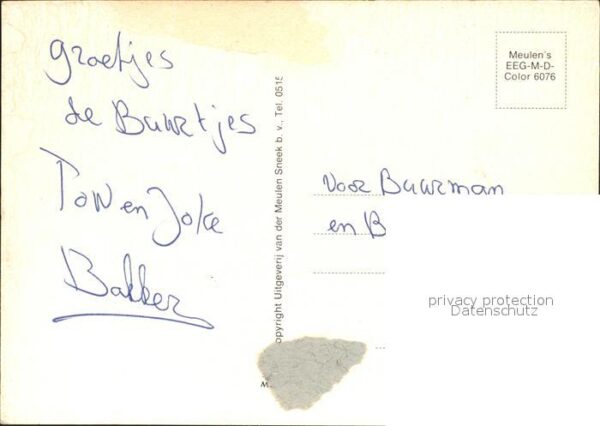 groetjes
de Buurtjes
Ton en Joke
Bakker
opyright Uitgeverij van der Meulen Sneek b. v., Tel. 0515
M
Meulen's
EEG-M-D-
Color 6076
Voor Buurman
en B
privacy protection
Datenschutz